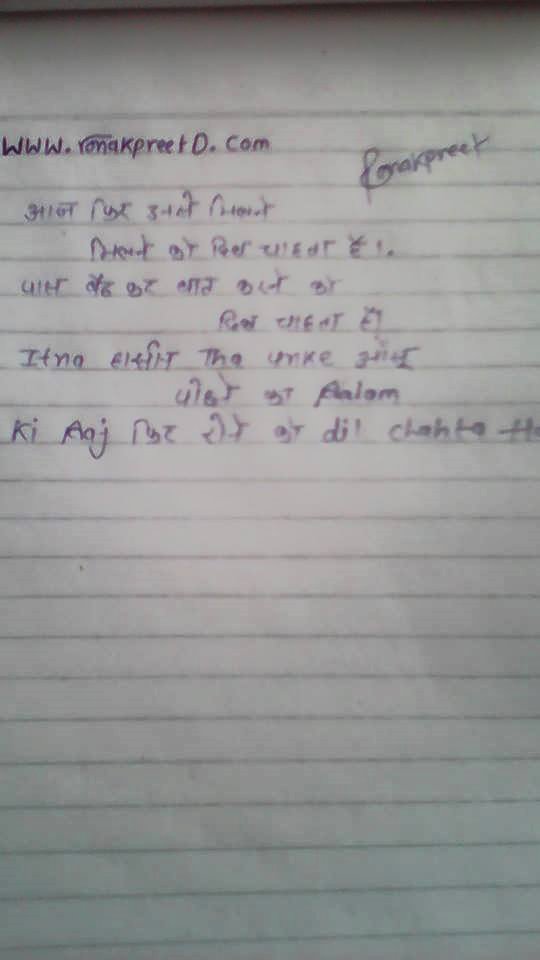 www.ronakpreetD.com
Ronakpreet
आज फिर उनसे मिलने
मिलने को दिल चाहता है।.
पास बैठ कर बात करने को
दिल चाहता है
Itna हसीन Tha unke आँसू
पोछने का Aalam
Ki Aaj फिर रोने को dil chahta Ha